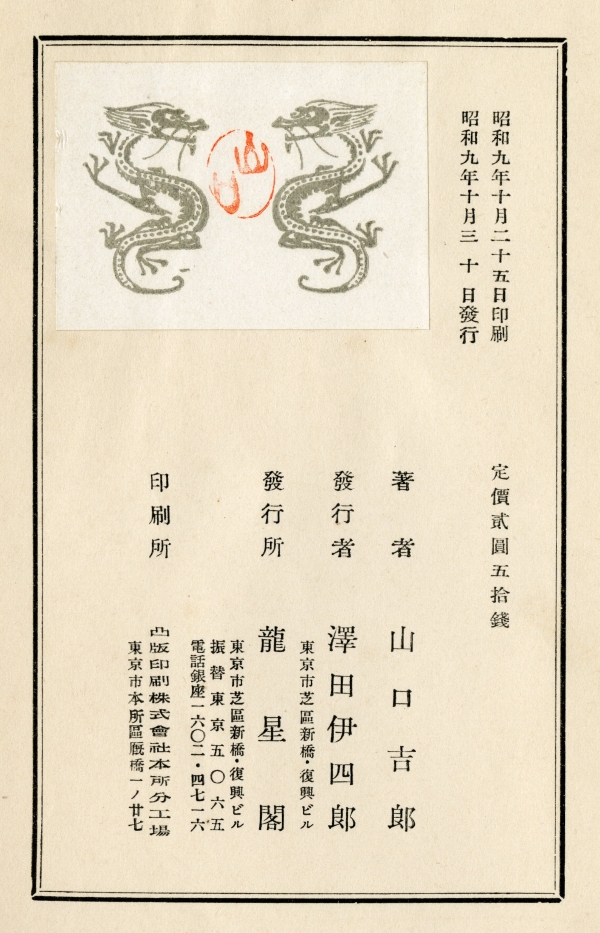 昭和九年十月二十五日印刷
昭和九年十月三十日發行
定價貳圓五拾錢
著者 山口吉郎
發行者 澤田伊四郎
東京市芝區新橋・復興ビル
發行所 龍星閣
東京市芝區新橋・復興ビル
振替東京五〇六五
電話銀座一六〇二・四七一六
印刷所 凸版印刷株式會社本所分工場
東京市本所區厩橋一ノ廿七